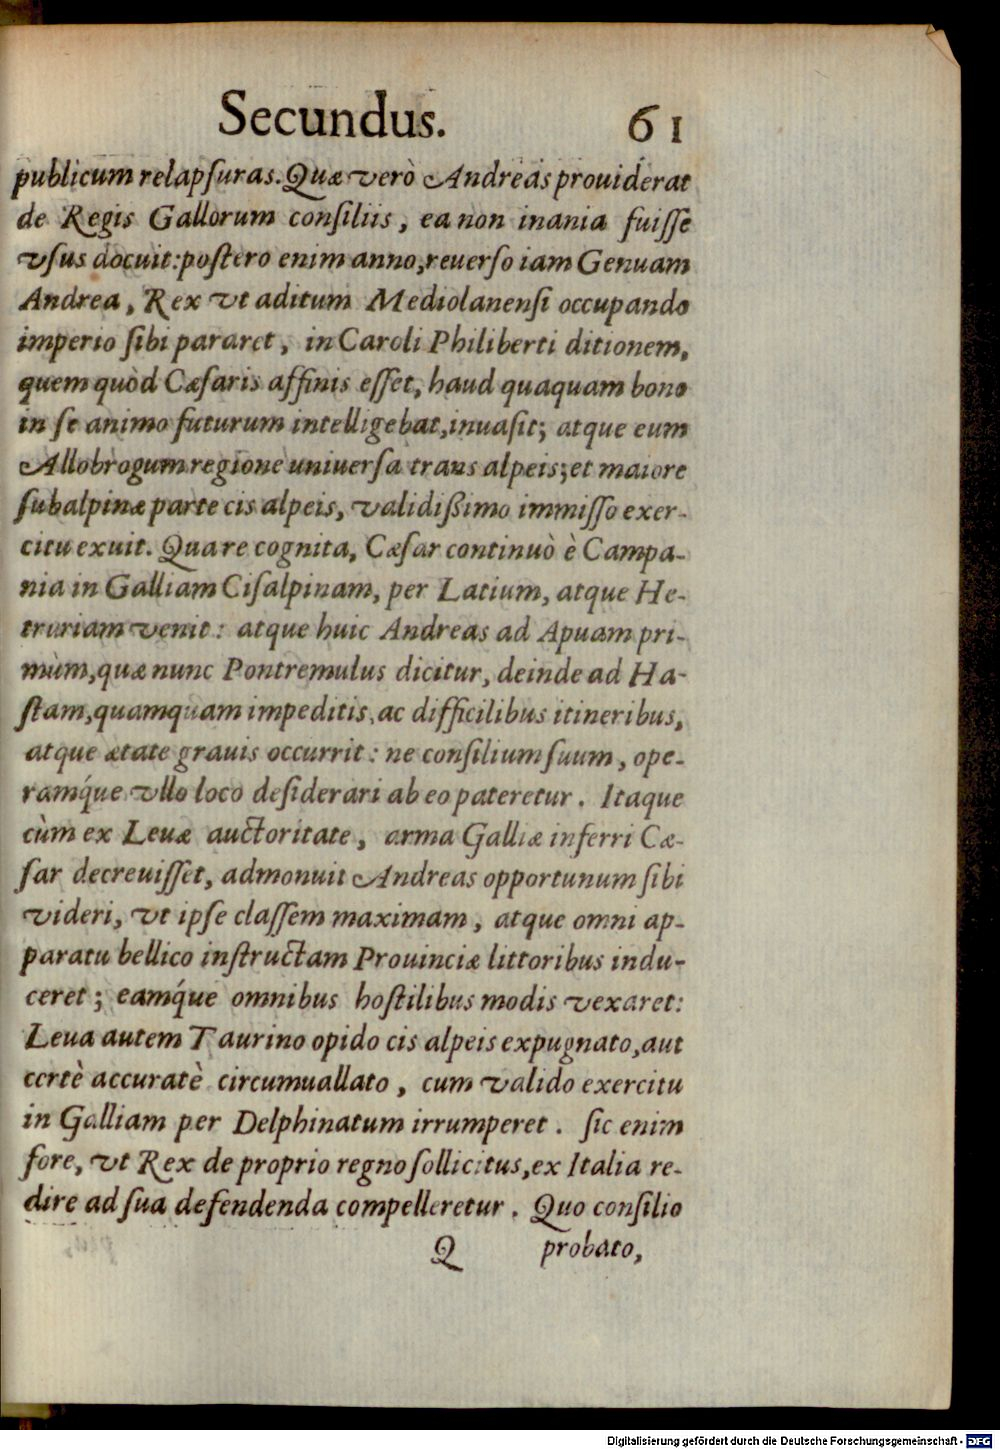 Secundus. 61
publicum relapſuras. Quæ verò Andreas prouiderat
de Regis Gallorum conſiliis, ea non inania fuiſſe
vſus docuit: poſtero enim anno, reuerſo iam Genuam
Andrea, Rex vt aditum Mediolanenſi occupando
imperio ſibi pararet, in Caroli Philiberti ditionem,
quem quòd Cæſaris affinis eſſet, haud quaquam bono
in ſe animo futurum intelligebat, inuaſit; atque eum
Allobrogum regione uniuerſa trans alpeis; et maiore
ſubalpinæ parte cis alpeis, validißimo immiſſo exer-
citu exuit. Qua re cognita, Cæſar continuò è Campa-
nia in Galliam Ciſalpinam, per Latium, atque He-
truriam venit: atque huic Andreas ad Apuam pri-
mùm, quæ nunc Pontremulus dicitur, deinde ad Ha-
ſtam, quamquam impeditis, ac difficilibus itineribus,
atque ætate grauis occurrit: ne conſilium ſuum, ope-
ramq́ue vllo loco deſiderari ab eo pateretur. Itaque
cùm ex Leuæ auctoritate, arma Galliæ inferri Cæ-
ſar decreuiſſet, admonuit Andreas opportunum ſibi
videri, vt ipſe claſſem maximam, atque omni ap-
paratu bellico inſtructam Prouinciæ littoribus indu-
ceret; eamq́ue omnibus hoſtilibus modis vexaret:
Leua autem Taurino opido cis alpeis expugnato, aut
certè accuratè circumuallato, cum valido exercitu
in Galliam per Delphinatum irrumperet. ſic enim
fore, vt Rex de proprio regno ſollicitus, ex Italia re-
dire ad ſua defendenda compelleretur. Quo conſilio
Q probato,
Digitalisierung gefördert durch die Deutsche Forschungsgemeinschaft - DFG